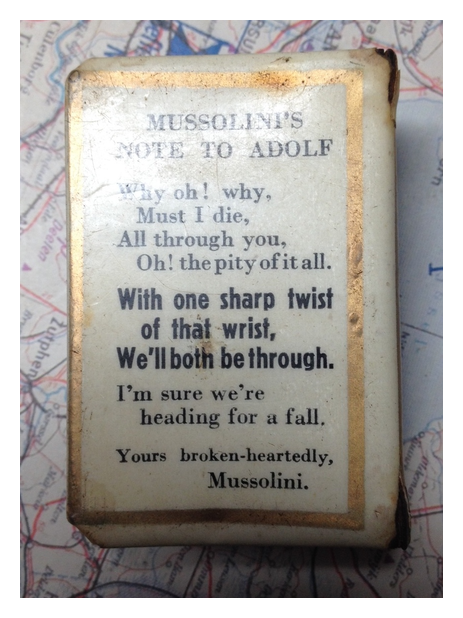 MUSSOLINI'S
NOTE TO ADOLF
Why oh! why,
Must I die,
All through you,
Oh! the pity of it all.
With one sharp twist
of that wrist,
We'll both be through.
I'm sure we're
heading for a fall.
Yours broken-heartedly,
Mussolini.